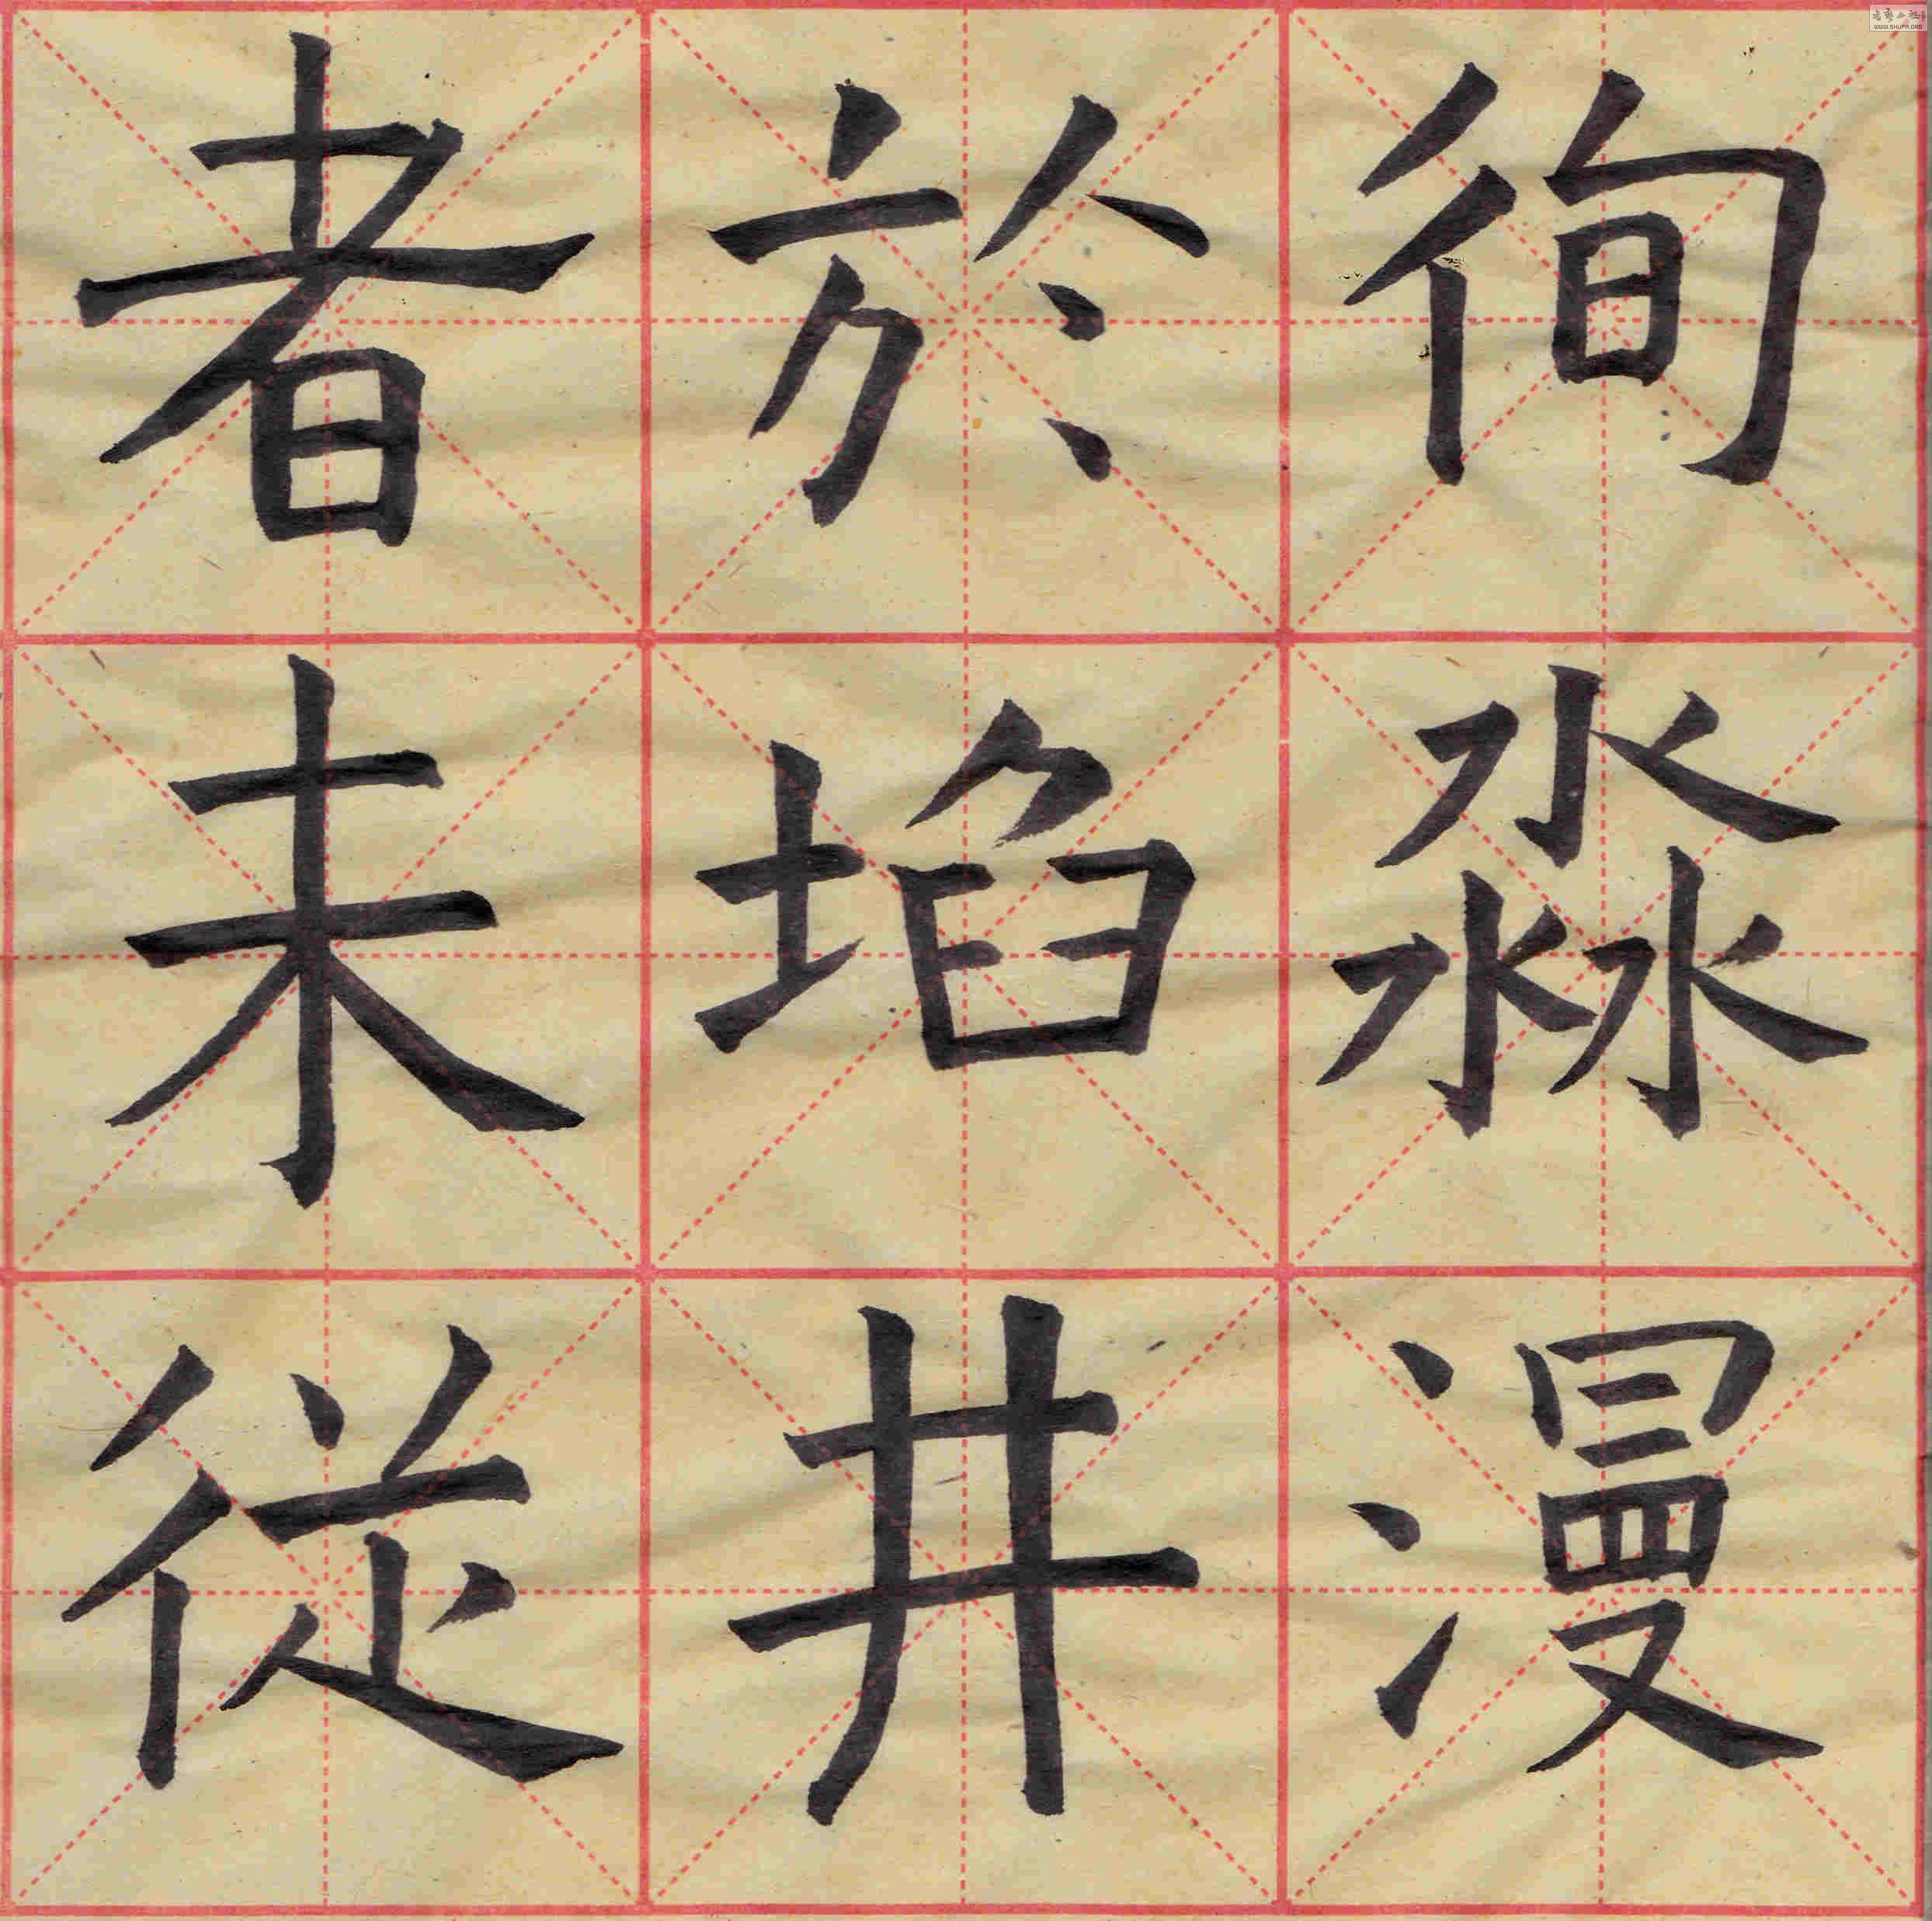 徇淼漫
於埳井
者未從
WWW.SHUFA.ORG